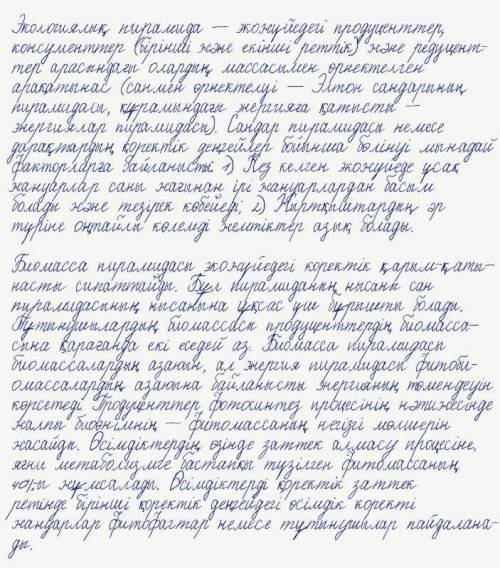 Экологиялық пирамида — экожүйедегі продуценттер,
консументтер (бірінші және екінші реттік) және редуцент-
тер арасындағы олардың массасымен өрнектелген
арақатынас (санмен өрнектелуі — Элтон сандарының
пирамидасы, құрамындағы энергияға қатысты —
энергиялар пирамидасы). Сандар пирамидасы немесе
дарақтардың қоректік деңгейлер бойынша бөлінуі мынадай
факторларға байланысты: 1) Кез келген экожүйеде ұсақ
жануарлар саны жағынан ірі жануарлардан басым
болады және тезірек көбейеді; 2) Жыртқыштардың әр
түріне оңтайлы көлемді жемтіктер азық болады.
Биомасса пирамидасы экожүйедегі қоректік қарым-қаты-
насты сипаттайды. Бұл пирамиданың нысаны сан
пирамидасының нысанына ұқсас үш бұрышты болады.
Тұтынушылардың биомассасы продуценттердің биомасса-
сына қарағанда екі еседей аз. Биомасса пирамидасы
биомассалардың азаюын, ал энергия пирамидасы фитоби-
омассалардың азаюына байланысты энергияның төмендеуін
көрсетеді. Продуценттер фотосинтез процесінің нәтижесінде
жалпы биоөнімнің — фитомассаның негізгі мөлшерін
жасайды. Өсімдіктердің өзінде заттек алмасу процесіне,
яғни метаболизмге бастапқы түзілген фитомассаның
40%-ы жұмсалады. Өсімдіктерді қоректік заттек
ретінде бірінші қоректік деңгейдегі өсімдік қоректі
жануарлар фитофагтар немесе тұтынушылар пайдалана-
ды.